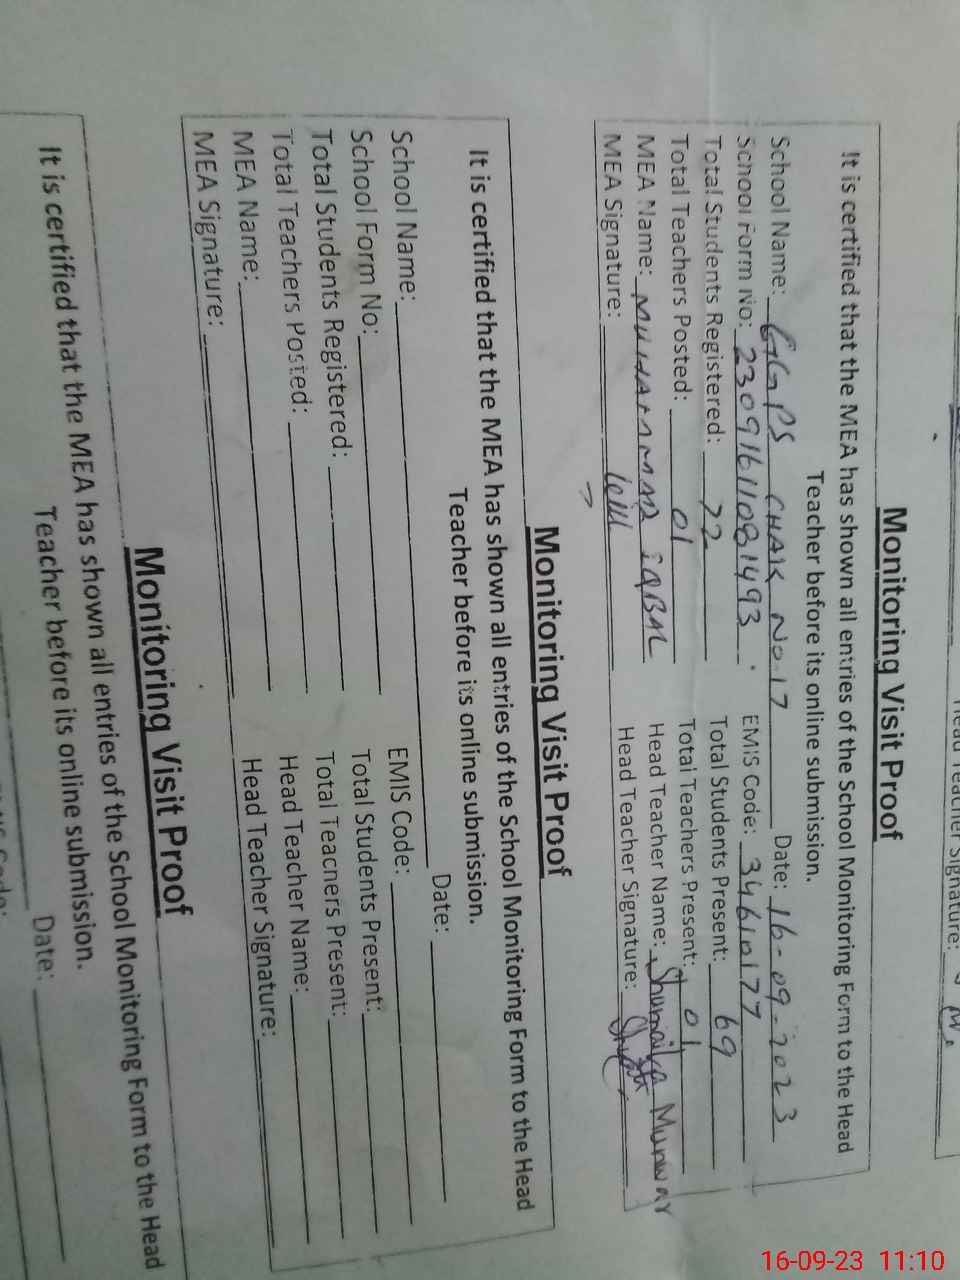 Head Teacher Signature:
Monitoring Visit Proof
It is certified that the MEA has shown all entries of the School Monitoring Form to the Head
Teacher before its online submission.
School Name: GGPS CHAK NO.17 Date: 16-09-2023
School Form No: 23091611081493 EMIS Code: 34610177
Total Students Registered: 72 Total Students Present: 69
Total Teachers Posted: 01 Total Teachers Present: 01
MEA Name: MUHAMMAD IQBAL Head Teacher Name: Shumaila Munwar
MEA Signature: Head Teacher Signature:
Monitoring Visit Proof
It is certified that the MEA has shown all entries of the School Monitoring Form to the Head
Teacher before its online submission.
School Name: Date:
School Form No: EMIS Code:
Total Students Registered: Total Students Present:
Total Teachers Posted: Total Teachers Present:
MEA Name: Head Teacher Name:
MEA Signature: Head Teacher Signature:
Monitoring Visit Proof
It is certified that the MEA has shown all entries of the School Monitoring Form to the Head
Teacher before its online submission.
Date:
16-09-23 11:10